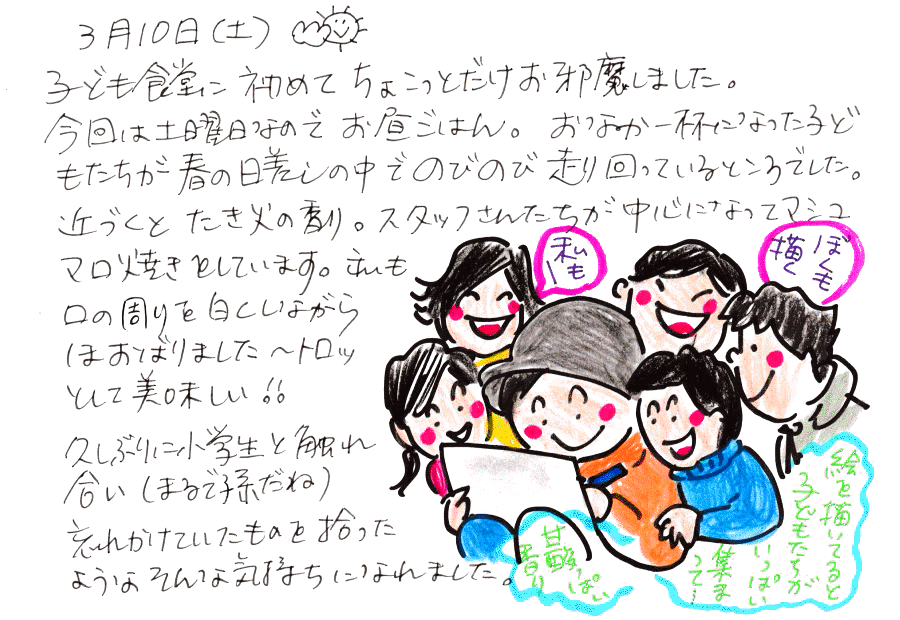 3月10日(土)
子ども食堂に初めてちょこっとだけお邪魔しました。
今回は土曜日なのでお昼ごはん。おなか一杯になった子ど
もたちが春の日差しの中でのびのび走り回っているところでした。
近づくとたき火の香り。スタッフさんたちが中心になってマシュ
マロ焼きをしています。私も
口の周りを白くしながら
ほおばりました〜トロッ
として美味しい!!
久しぶりに小学生と触れ
合い(まるで孫だね)
忘れかけていたものを拾った
ようなそんな気持ちになれました。
私も
ー
ぼくも
描く
絵を描いてると
子どもたちが
いっぱい
集ま
って…
甘酸っぱい
香り